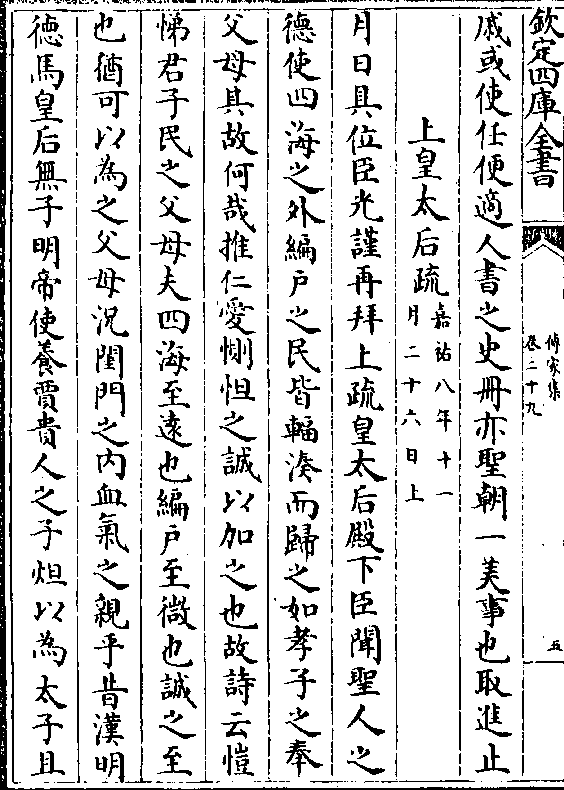 欽定四庫全書
傳家集
卷二十九
五
戚或使任便適人書之史冊亦聖朝一美事也取進止
上皇太后疏嘉祐八年十一月二十六日上
月日具位臣光謹再拜上疏皇太后殿下臣聞聖人之
德使四海之外編户之民皆輻湊而歸之如孝子之奉
父母其故何哉推仁愛惻怛之誠以加之也故詩云愷
悌君子民之父母夫四海至遠也編户至微也誠之至
也猶可以為之父母況閨門之内血氣之親乎昔漢明
徳馬皇后無子明帝使養賈貴人之子炟以為太子且